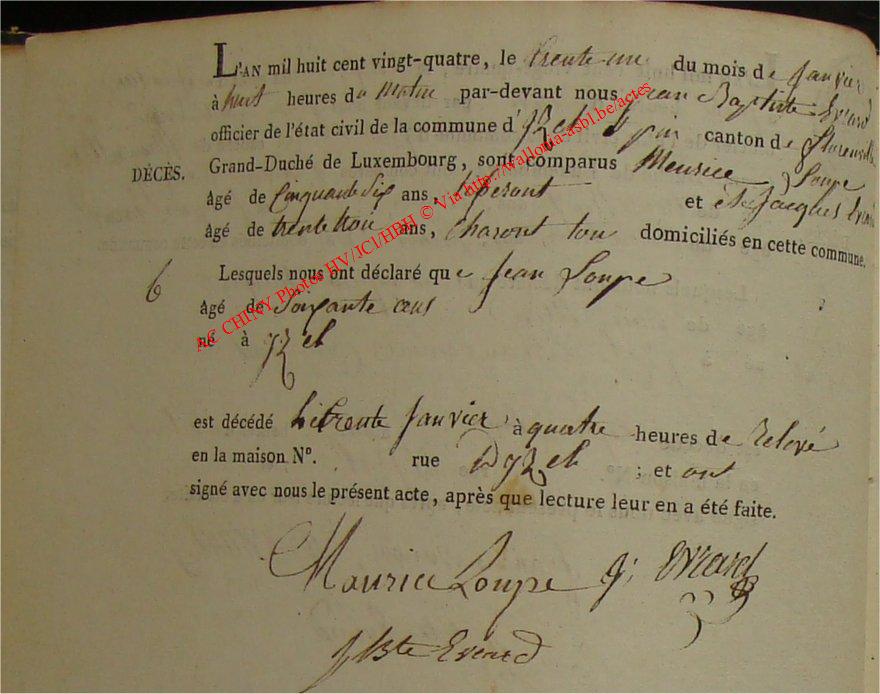 L'AN mil huit cent vingt-quatre, le trente un du mois de Janvier
à huit heures du Matin par-devant nous Jean Baptiste Evrard
officier de l'état civil de la commune d'Izel & pin canton de florenville
DÉCÈS. Grand-Duché de Luxembourg, sont comparus Meurice Loupe
âgé de Cinquante Six ans, et Jacques Evrard
âgé de trente troi ans, Charont tou domiciliés en cette commune.
6 Lesquels nous ont déclaré que Jean Loupe
âgé de Soixante ans
né à Izel
est décédé le trente Janvier à quatre heures de Relevé
en la maison N°. rue D'yzel ; et ont
signé avec nous le présent acte, après que lecture leur en a été faite.
Maurice Loupe j: Evrard
J Bte Evrard
AC CHINY Photos HV/JCl/HBH © Via http://wallonia-asbl.be/actes